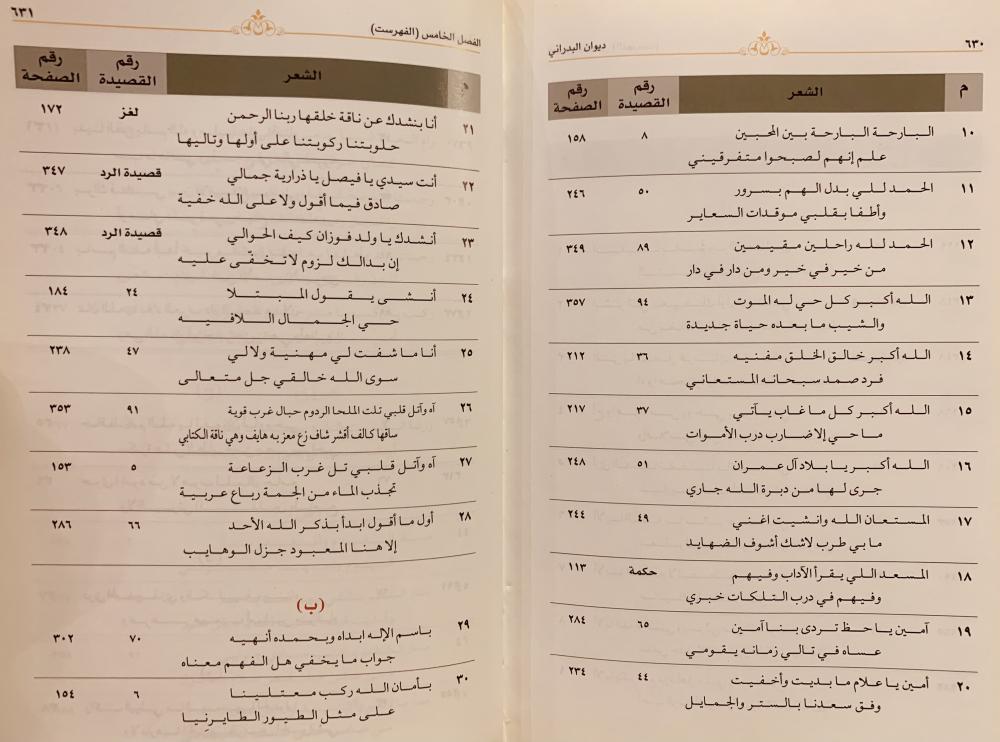 ٦٣٠
ديوان البدراني
م الشعر رقم القصيدة رقم الصفحة
١٠ البارحة البارحة بين المحبين ٨ ١٥٨
علم إنهم لصبحوا متفرقيني
١١ الحمد للي بدل الهم بسرور ٥٠ ٢٤٦
وأطفا بقلبي موقدات السعاير
١٢ الحمد لله راحلين مقيمين ٨٩ ٣٤٩
من خير في خير ومن دار في دار
١٣ الله أكبر كل حي له الموت ٩٤ ٣٥٧
والشيب ما بعده حياة جديدة
١٤ الله أكبر خالق الخلق مفنيه ٣٦ ٢١٢
فرد صمد سبحانه المستعاني
١٥ الله أكبر كل ما غاب يآتي ٣٧ ٢١٧
ما حي إلا ضارب درب الأموات
١٦ الله أكبر يا بلاد آل عمران ٥١ ٢٤٨
جرى لها من دبرة الله جاري
١٧ المستعان الله وانشيت اغني ٤٩ ٢٤٤
ما بي طرب لاشك أشوف الضهايد
١٨ المسعد اللي يقرأ الآداب وفيهم حكمة ١١٣
وفيهم في درب التلكات خبري
١٩ آمين يا حظ تردى بنا آمين ٦٥ ٢٨٤
عساه في تالي زمانه يقومي
٢٠ أمين يا علام ما بديت وأخفيت ٤٤ ٢٣٤
وفق سعدنا بالستر والجمايل
٦٣١
الفصل الخامس (الفهرست)
م الشعر رقم القصيدة رقم الصفحة
٢١ أنا بنشدك عن ناقة خلقها ربنا الرحمن لغز ١٧٢
حلوبتنا ركوبتنا على أولها وتاليها
٢٢ أنت سيدي يا فيصل يا ذرارية جمالي قصيدة الرد ٣٤٧
صادق فيما أقول ولا على الله خفية
٢٣ أنشدك يا ولد فوزان كيف الحوالي قصيدة الرد ٣٤٨
إن بدالك لزوم لا تخفّى عليه
٢٤ أنشى يقول المبتلا ٢٤ ١٨٤
حي الجمال اللافيه
٢٥ أنا ما شفت لي مهنية ولا لي ٤٧ ٢٣٨
سوى الله خالقي جل متعالى
٢٦ آه وآتل قلبي تلت الملحا الردوم حبال غرب قوية ٩١ ٣٥٣
ساقها كالف أقشر شاف زع معزبه هايف وهي ناقة الكتابي
٢٧ آه وآتل قلبي تل غرب الزعاعة ٥ ١٥٣
تجذب الماء من الجمة رباع عربية
٢٨ أول ما أقول ابدأ بذكر الله الأحد ٦٦ ٢٨٦
إلا هنا المعبود جزل الوهايب
(ب)
٢٩ باسم الإله ابداه وبحمده أنهيه ٧٠ ٣٠٢
جواب ما يخفي هل الفهم معناه
٣٠ بأمان الله ركب معتلينا ٦ ١٥٤
على مثل الطيور الطايرنِيا